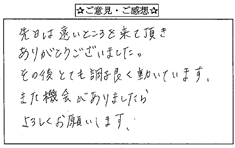 ☆ご意見・ご感想☆
先日は遠いところを来て頂き
ありがとうございました。
その後とても調子良く動いています。
また機会がありましたら
よろしくお願いします。